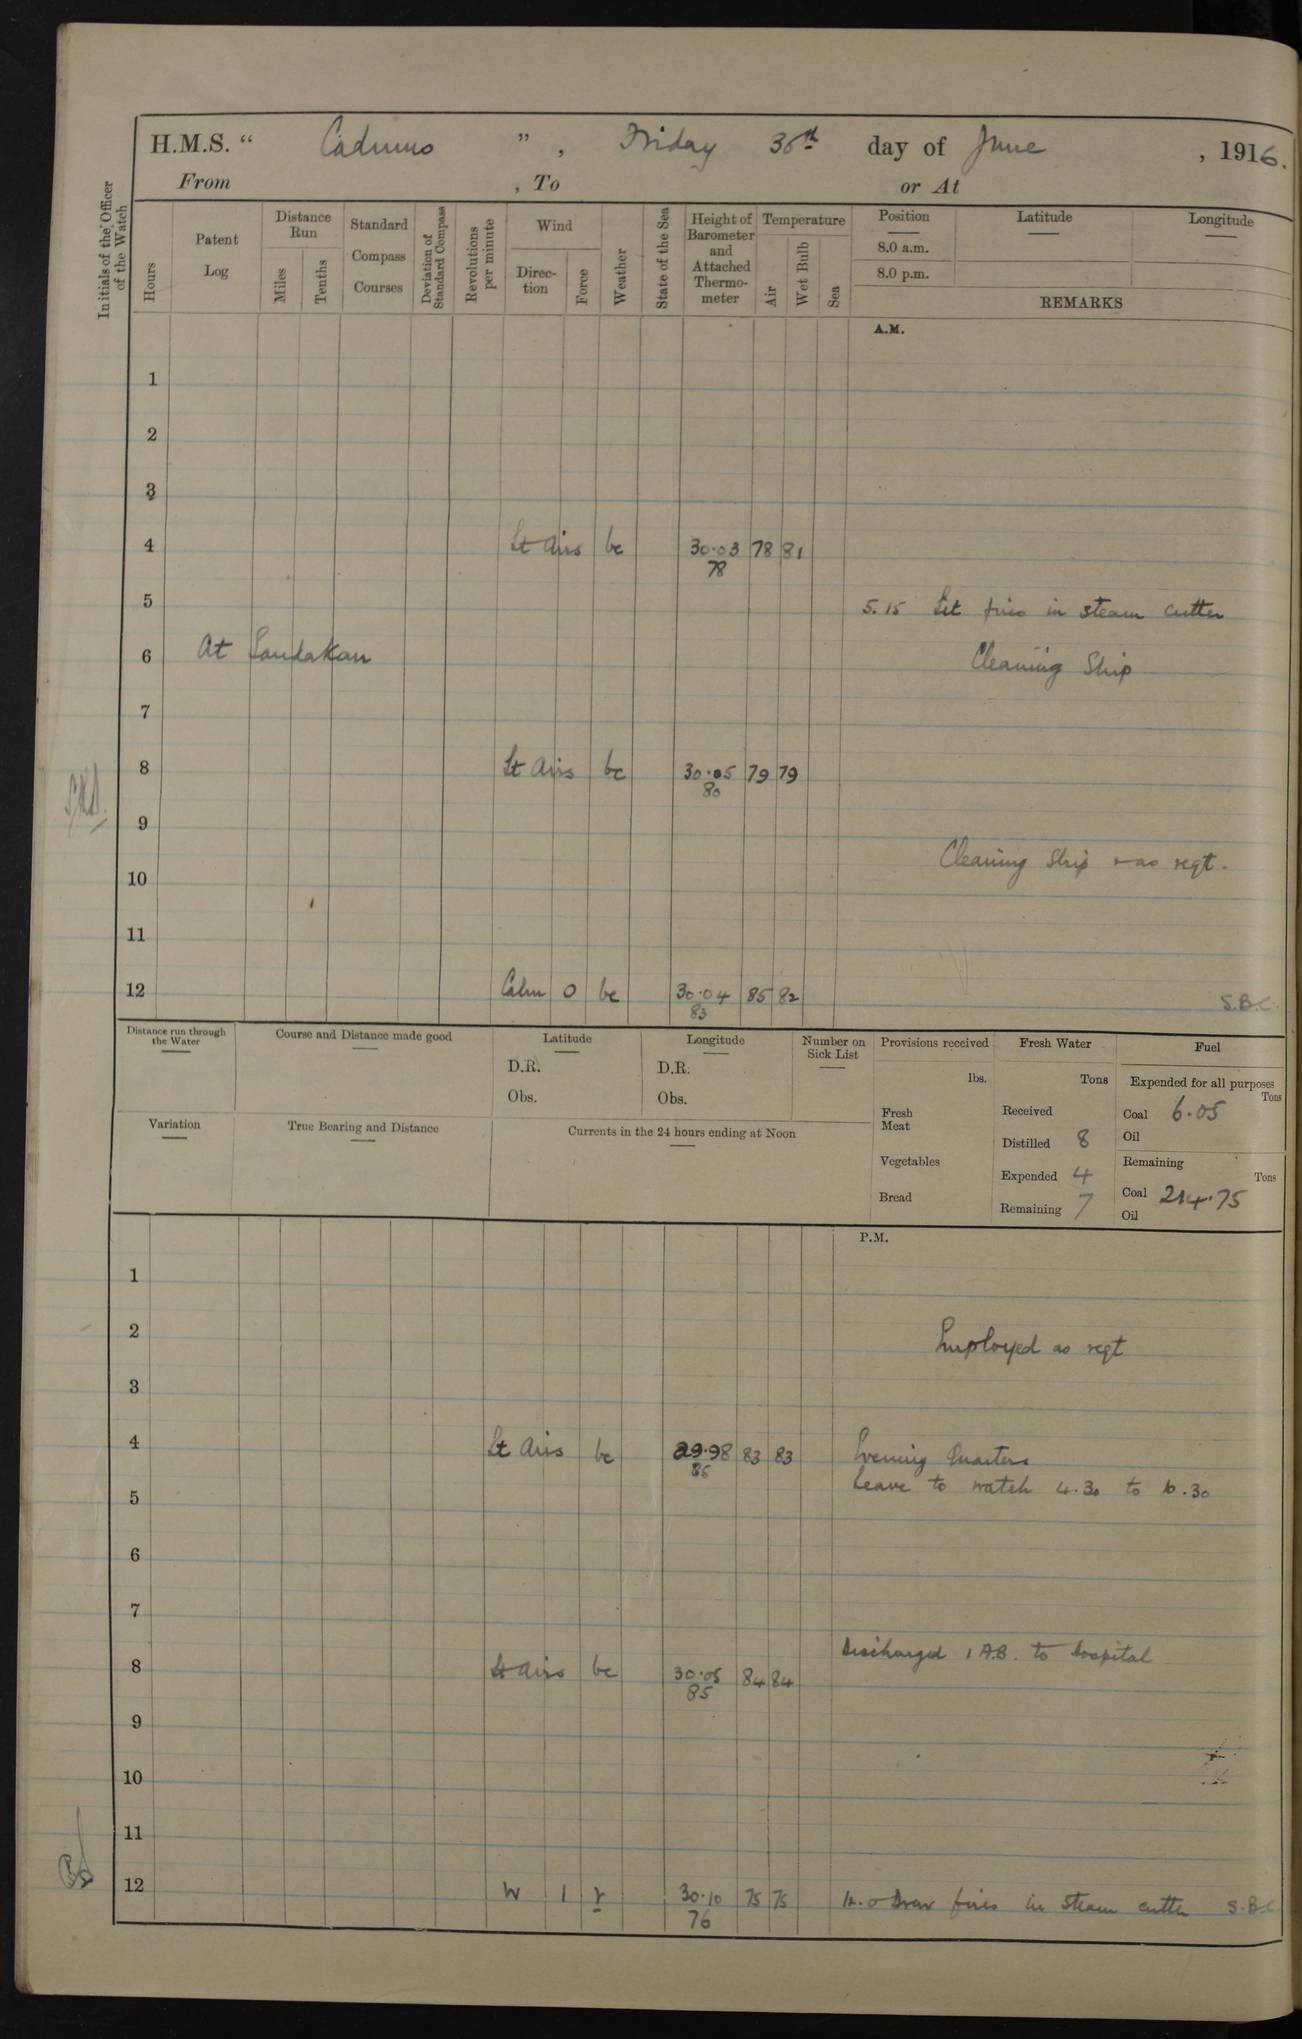 H.M.S. “ Cadmus ” , Friday 30th day of June , 1916.
From , To or At
Initials of the Officer of the Watch
Hours
Patent Log
Distance Run
Miles
Tenths
Standard Compass Courses
Deviation of Standard Compass
Revolutions per minute
Wind
Direction
Force
Weather
State of the Sea
Height of Barometer and Attached Thermometer
Temperature
Air
Wet Bulb
Sea
Position
8.0 a.m.
8.0 p.m.
Latitude
Longitude
REMARKS
A.M.
1
2
3
4 Lt airs bc 30.03 78 81
78
5 5.15 Lit fires in steam cutter
6 At Sandakan Cleaning Ship
7
8 Lt airs bc 30.05 79 79
80
9
Cleaning Ship & as reqt.
10
11
12 Calm 0 bc 30.04 85 82 S.B.C.
83
Distance run through the Water
Course and Distance made good
Latitude
D.R.
Obs.
Longitude
D.R.
Obs.
Number on Sick List
Provisions received
lbs.
Fresh Meat
Vegetables
Bread
Fresh Water
Tons
Received
Distilled 8
Expended 4
Remaining 7
Fuel
Expended for all purposes
Tons
Coal 6.05
Oil
Remaining
Tons
Coal 214.75
Oil
Variation
True Bearing and Distance
Currents in the 24 hours ending at Noon
P.M.
1
2 Employed as reqt
3
4 Lt airs bc 29.98 83 83 Evening Quarters
85
Leave to watch 4.30 to 10.30
5
6
7
Discharged 1 A.B. to hospital
8 Lt airs bc 30.05 84 84
85
9
10
11
12 W 1 r 30.10 75 75 12.0 Draw fires in steam cutter S.B.C.
76